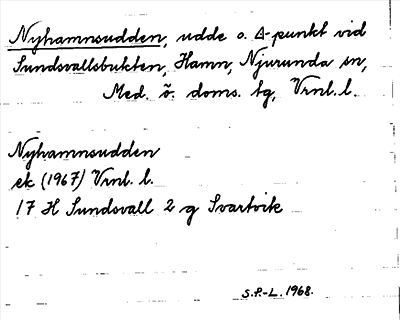 Nyhamnsudden, udde o. Δ-punkt vid
Sundsvallsbukten, Hamn, Njurunda sn,
Med. ö. doms. tg, Vrnl. l.
Nyhamnsudden
ek (1967) Vrnl. l.
17 H Sundsvall 2 g Svartvik
S.P.-L. 1968.